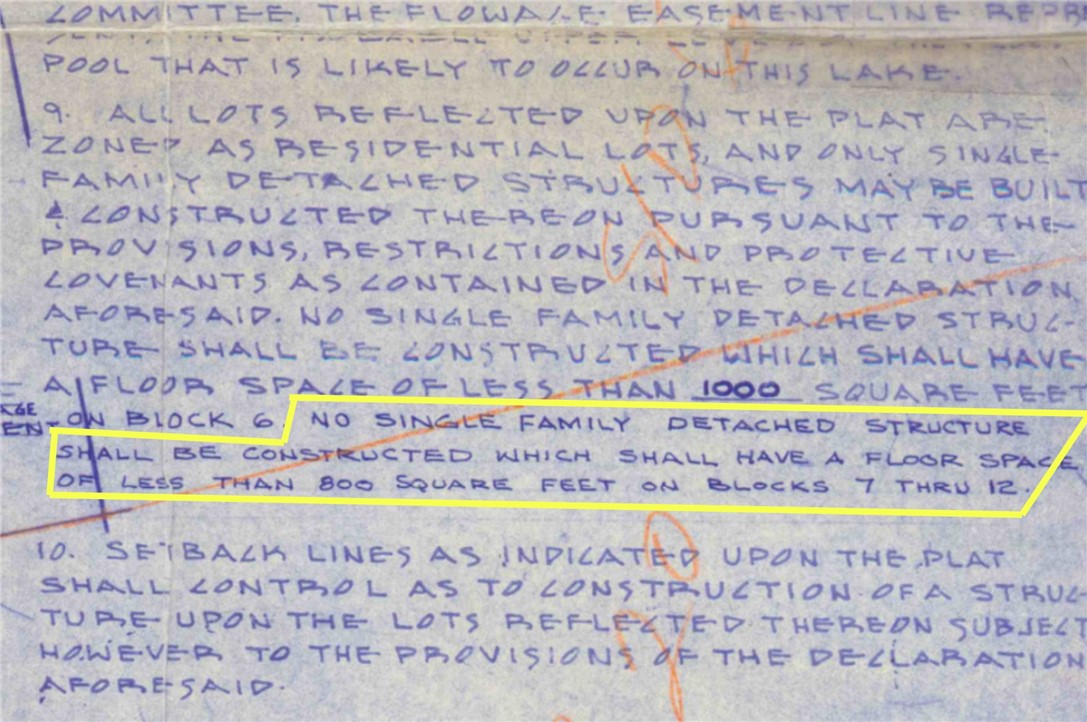 COMMITTEE. THE FLOWAGE EASEMENT LINE REPR
POOL THAT IS LIKELY TO OCCUR ON THIS LAKE.
9. ALL LOTS REFLECTED UPON THE PLAT ARE
ZONED AS RESIDENTIAL LOTS, AND ONLY SINGLE
FAMILY DETACHED STRUCTURES MAY BE BUILT
& CONSTRUCTED THEREON PURSUANT TO THE
PROVISIONS, RESTRICTIONS AND PROTECTIVE
COVENANTS AS CONTAINED IN THE DECLARATION
AFORESAID. NO SINGLE FAMILY DETACHED STRUC-
TURE SHALL BE CONSTRUCTED WHICH SHALL HAVE
A FLOOR SPACE OF LESS THAN 1000 SQUARE FEET
ON BLOCK 6. NO SINGLE FAMILY DETACHED STRUCTURE
SHALL BE CONSTRUCTED WHICH SHALL HAVE A FLOOR SPACE
OF LESS THAN 800 SQUARE FEET ON BLOCKS 7 THRU 12.
10. SETBACK LINES AS INDICATED UPON THE PLAT
SHALL CONTROL AS TO CONSTRUCTION OF A STRUC-
TURE UPON THE LOTS REFLECTED THEREON SUBJECT
HOWEVER TO THE PROVISIONS OF THE DECLARATION
AFORESAID.